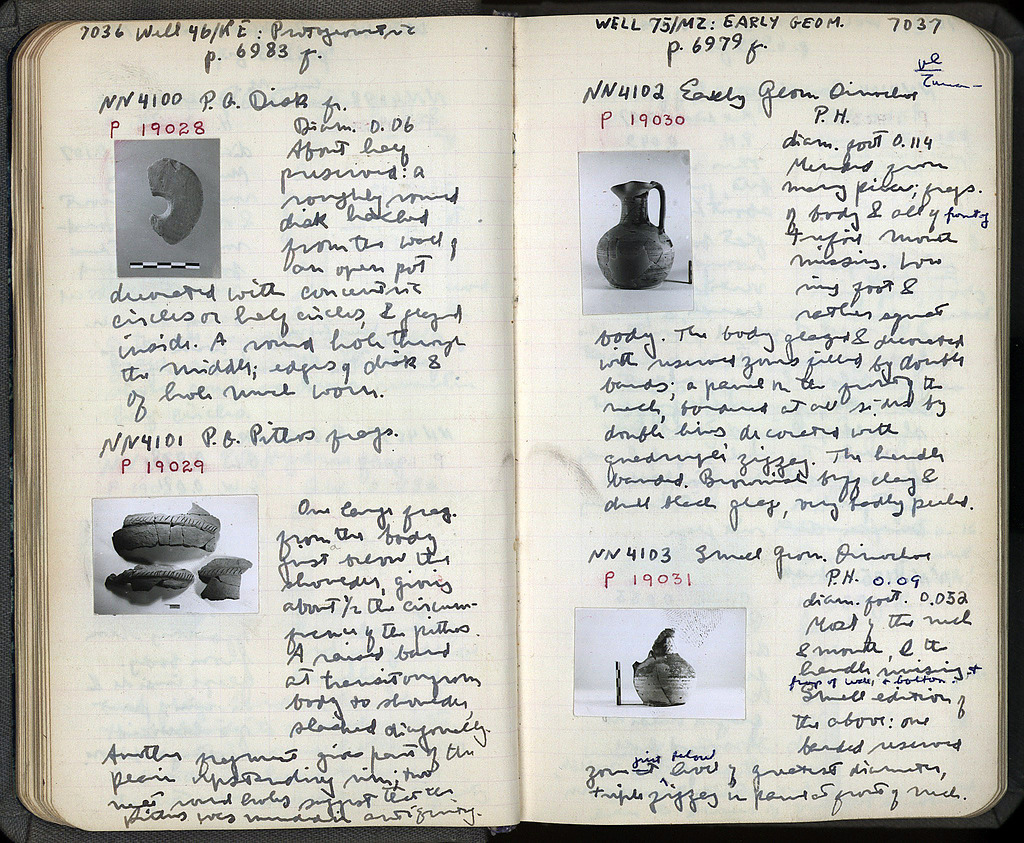 7036 Well 46/KE: Protogeometric
p. 6983 f.
NN4100 P.G. Disk fr.
P 19028
Diam. 0.06
About half
preserved: a
roughly round
disk hacked
from the wall of
an open pot
decorated with concentric
circles or half circles, & glazed
inside. A round hole through
the middle; edges of disk &
of hole much worn.
NN4101 P.G. Pithos frags.
P 19029
One large frag.
from the body
just below the
shoulder, giving
about 1/2 the circum-
ference of the pithos.
A raised band
at transition from
body to shoulder,
slashed diagonally.
Another fragment gives part of the
plain upstanding rim; two
round holes suggest that the
pithos was mended in antiquity.
WELL 75/MZ: EARLY GEOM. 7037
p. 6979 f.
NN4102 Early Geom Oinochoe
P 19030
P.H.
diam. foot 0.114
Mended from
many pieces; frags.
of body & all of front of
trefoil mouth
missing. Low
ring foot &
rather squat
body. The body glazed & decorated
with reserved zones filled by double
bands; a panel on the front of the
neck, bordered at all sides by
double lines decorated with
quadruple zigzag. The handle
banded. Brownish buff clay &
dull black glaze, very badly peeled.
NN4103 Small Geom. Oinochoe
P 19031
P.H. 0.09
diam. foot. 0.052
Most of the neck
& mouth, & the
handle missing +
frags of walls & bottom.
Small edition of
the above: one
banded reserved
zone just below level of greatest diameter,
triple zigzag in panel at front of neck.